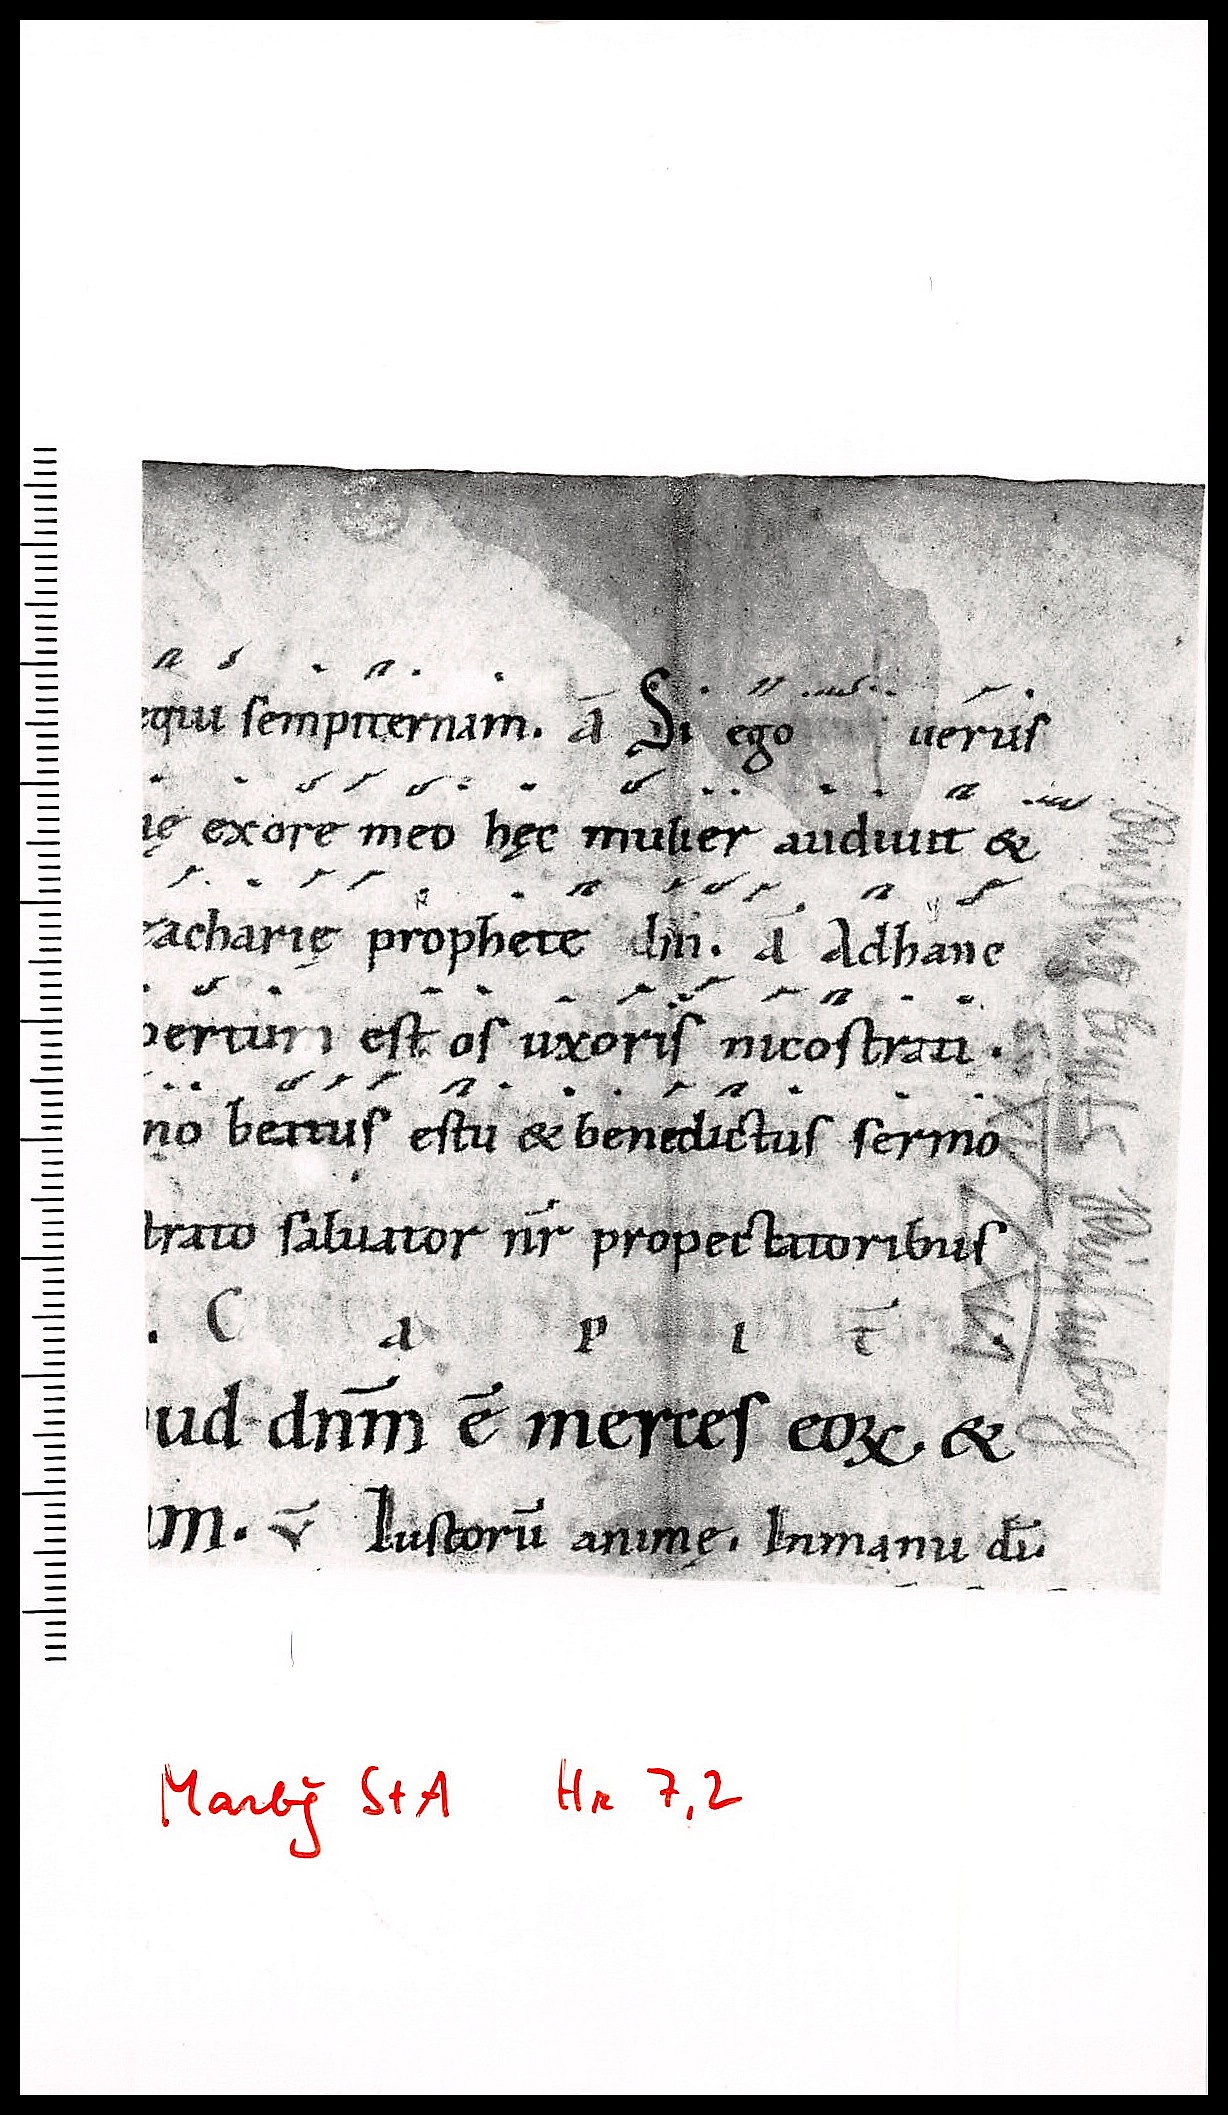 equi sempiternam. ā Si ego uerus
ię exore meo hęc mulier audiuit &
zacharię prophete dn̄i. ā Adhanc
pertum est os uxoris nicostrati.
no beatus es tu & benedictus sermo
trato saluator nr̄ propeccatoribus
. C a p i t̄
ud dn̄m ē merces eoꝝ &
am. v̄ Iustorū animę. Inmanu dī.
Marbg StA Hr 7,2